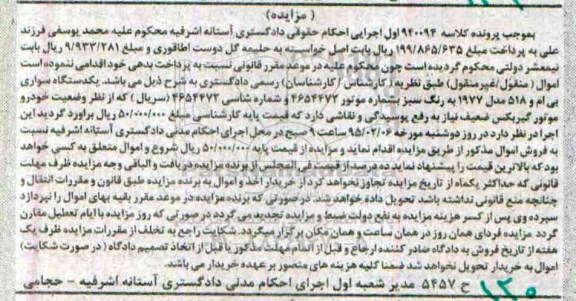 ( مزایده)
بموجب پرونده کلاسه ۹۴۰۰۹۴ اول اجرایی احکام حقوقی دادگستری آستانه اشرفیه محکوم علیه محمد یوسفی فرزند
علی به پرداخت مبلغ ۱۹۹/۸۶۵/۶۳۵ ریال بابت اصل خواسته به حلیمه گل دوست اطاقوری و مبلغ ۹/۹۳۳/۲۸۱ ریال بابت
نیمعشر دولتی محکوم گردیده است چون محکوم علیه در موعد مقرر قانونی نسبت به پرداخت بدهی خود اقدامی ننموده است
اموال ( منقول /غیرمنقول) طبق نظریه ( کارشناس / کارشناسان) رسمی دادگستری به شرح ذیل می باشد. یکدستگاه سواری
بی ام و ۵۱۸ مدل ۱۹۷۷ به رنگ سبز بشماره موتور ۴۶۵۴۴۷۳ و شماره شاسی ۴۶۵۴۴۷۳ (سریال ) که از نظر وضعیت خودرو
موتور گیربکس ضعیف نیاز به رفع پوسیدگی و نقاشی دارد که قیمت پایه کارشناسی مبلغ ۵۰/۰۰۰/۰۰۰ ریال برآورد گردید این
اجرا در نظر دارد در روز دوشنبه مورخه ۹۵/۰۲/۰۶ ساعت ۹ صبح در محل اجرای احکام مدنی دادگستری آستانه اشرفیه نسبت
به فروش اموال مذکور از طریق مزایده اقدام نماید و مزایده از قیمت پایه ۵۰/۰۰۰/۰۰۰ ریال شروع و اموال متعلق به کسی خواهد
بود که بالاترین قیمت را پیشنهاد نماید ده درصد از قیمت فی المجلس از برنده مزایده دریافت والباقی وجه مزایده ظرف مهلت
قانونی که حداکثر یکماه از تاریخ مزایده تجاوز نخواهد کرد از خریدار اخذ و اموال به برنده مزایده طبق قانون و مقررات انتقال و
چنانچه منع قانونی نداشته باشد تحویل داده خواهد شد. در صورتی که برنده مزایده در موعد مقرر بقیه بهای اموال را نپردازد
سپرده وی پس از کسر هزینه مزایده به نفع دولت ضبط و مزایده تجدید می گردد در صورتی که روز مزایده با ایام تعطیل مقارن
گردد مزایده فردای همان روز در همان ساعت و همان مکان برگزار میگردد. شکایت راجع به تخلف از مقررات مزایده ظرف یک
هفته از تاریخ فروش به دادگاه صادر کننده ارجاع و قبل از اتمام مهلت مذکور یا قبل از اتخاذ تصمیم دادگاه ( در صورت شکایت)
اموال به خریدار تحویل نخواهد شد ضمنا کلیه هزینه های متصور بر عهده خریدار می باشد.
ح ۵۴۵۷ مدیر شعبه اول اجرای احکام مدنی دادگستری آستانه اشرفیه - حجامی
۱۳۰